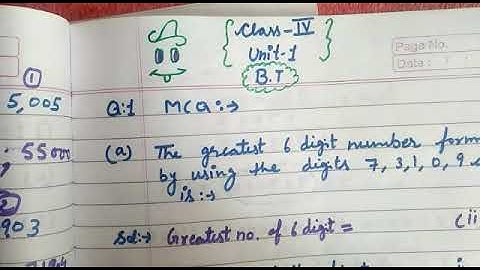 Class-IV
Unit-1
B.T
Page No.
Date:
1
5,005
Q:1 MCQ:→
.5500
(a) The greatest 6 digit number form
by using the digits 7, 3, 1, 0, 9
is:→
2
903
Sol:→ Greatest no. of 6 digit = (ii